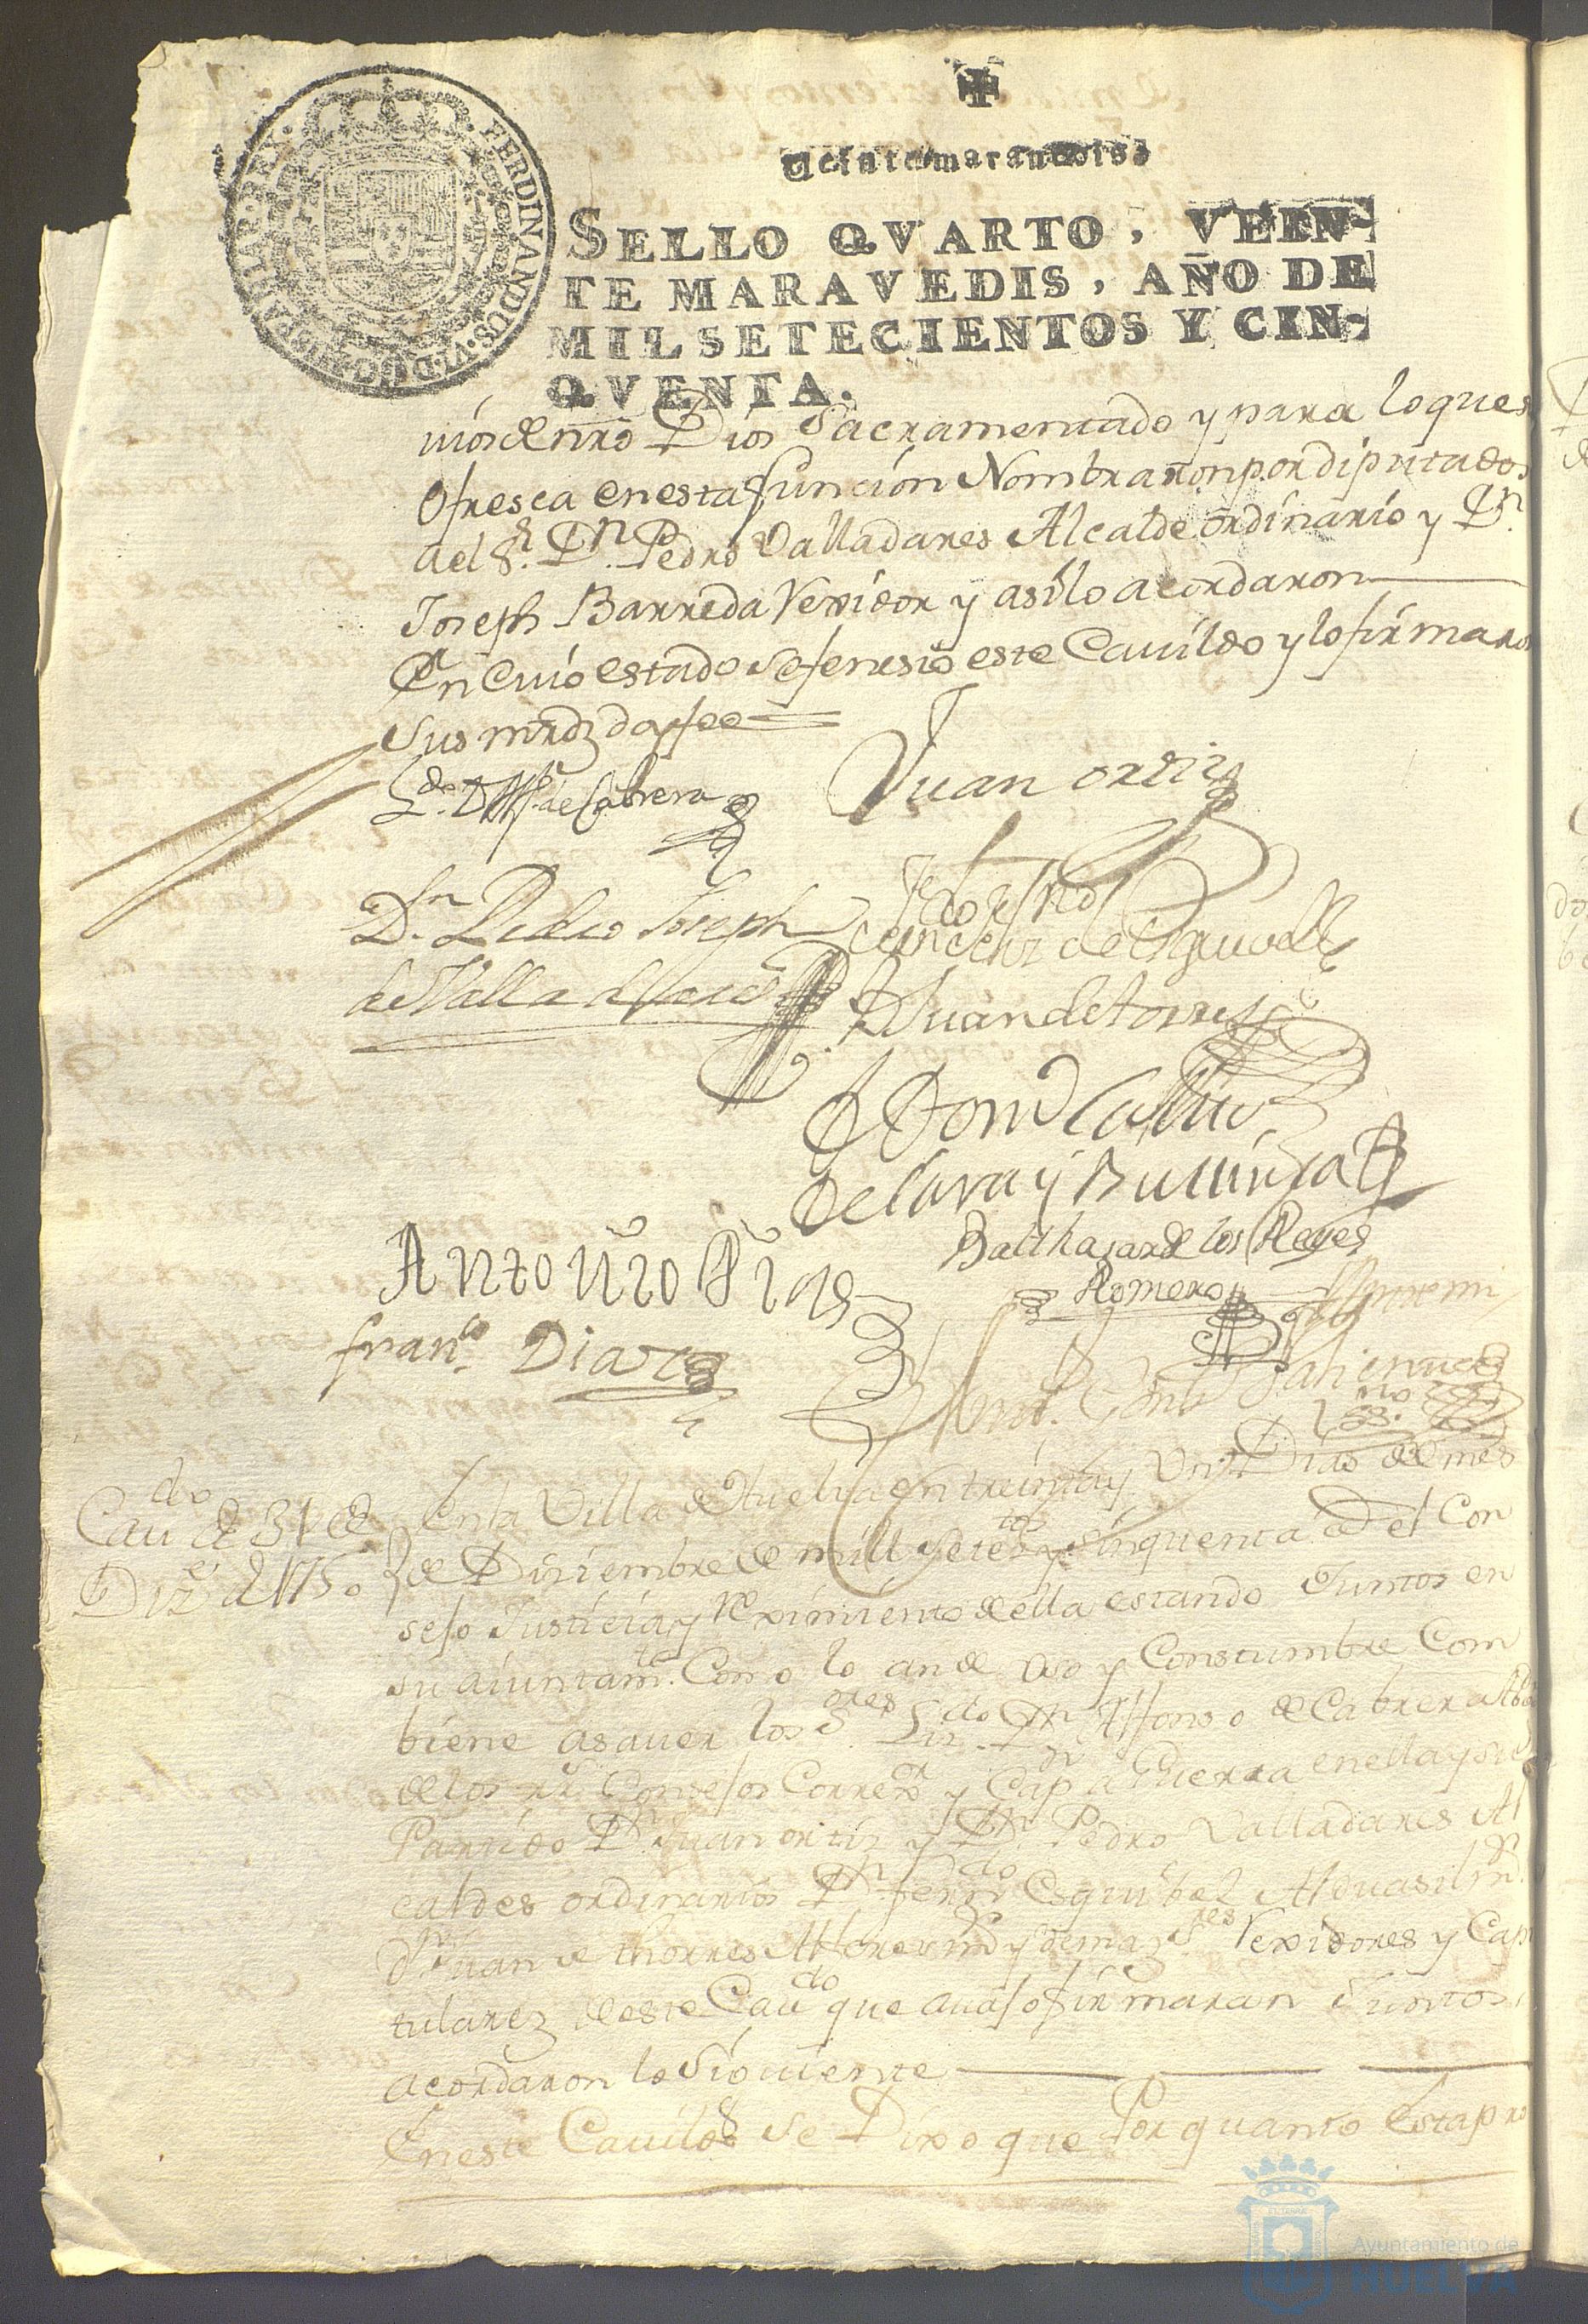 FERDINANDUS.VI.D.G. HISPANIAR.REX.
Veinte maravedis.
SELLO QVARTO, VEIN-
TE MARAVEDIS, AÑO DE
MIL SETECIENTOS Y CIN-
QVENTA.
nro Dios Sacramentado y para lo que se
Ofresca en esta función Nombraron por diputados
a el Sr. Dn. Pedro Valladares Alcalde ordinario y Dn.
Joseph Barreda Rexidor y asilo acordaron
En cuio estado se fenesio este Cavildo y lo firmaron
Sus mrdz doy fee
Ldo. D Alfo. de Cabrera
Juan ortiz
Dn. Pedro Joseph
de Valladares
de Esquivel
D Juan de torres
de Lara y
Antonio
Balthasar de los Reyes
Romero
franco. Diaz
Ante mi
Cavdo de 31 de
Dizre de 1750
En la Villa de Huelva en treinta y Un Dias del mes
de Diziembre de mill setetos y sinquenta a el Con
sejo Justicia y Reximiento de ella estando Juntos en
su aiuntamto. Como lo an de uso y Constumbre Com
biene asaver los Sores Lizdo Dn Alfonso de Cabrera Abo
de los rs. Consejos Correxor y Capn a Guerra en ella y su
Partido Dn Juan ortiz y Dn Pedro Valladares Al
caldes ordinarios Dn ferndo Esquibel Alguasil mr.
Dn Juan de thorres Alferes mr y demas Sres Rexidores y Capi
tularez de este Cavdo que avajo firmaran Juntos
acordaron lo Siguiente
En este Cavildo se Dixo que Por quanto Esta pro
Ayuntamiento de
HUELVA